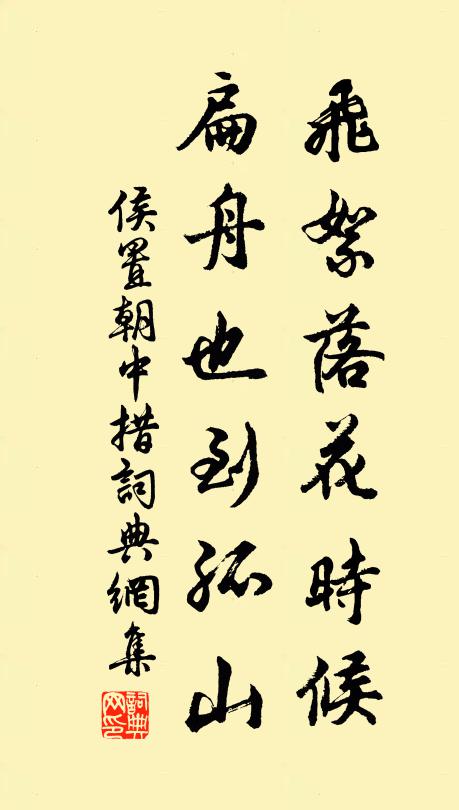 飛絮落花時候
扁舟也到孤山
侯置朝中措詞典網集
詞典網印